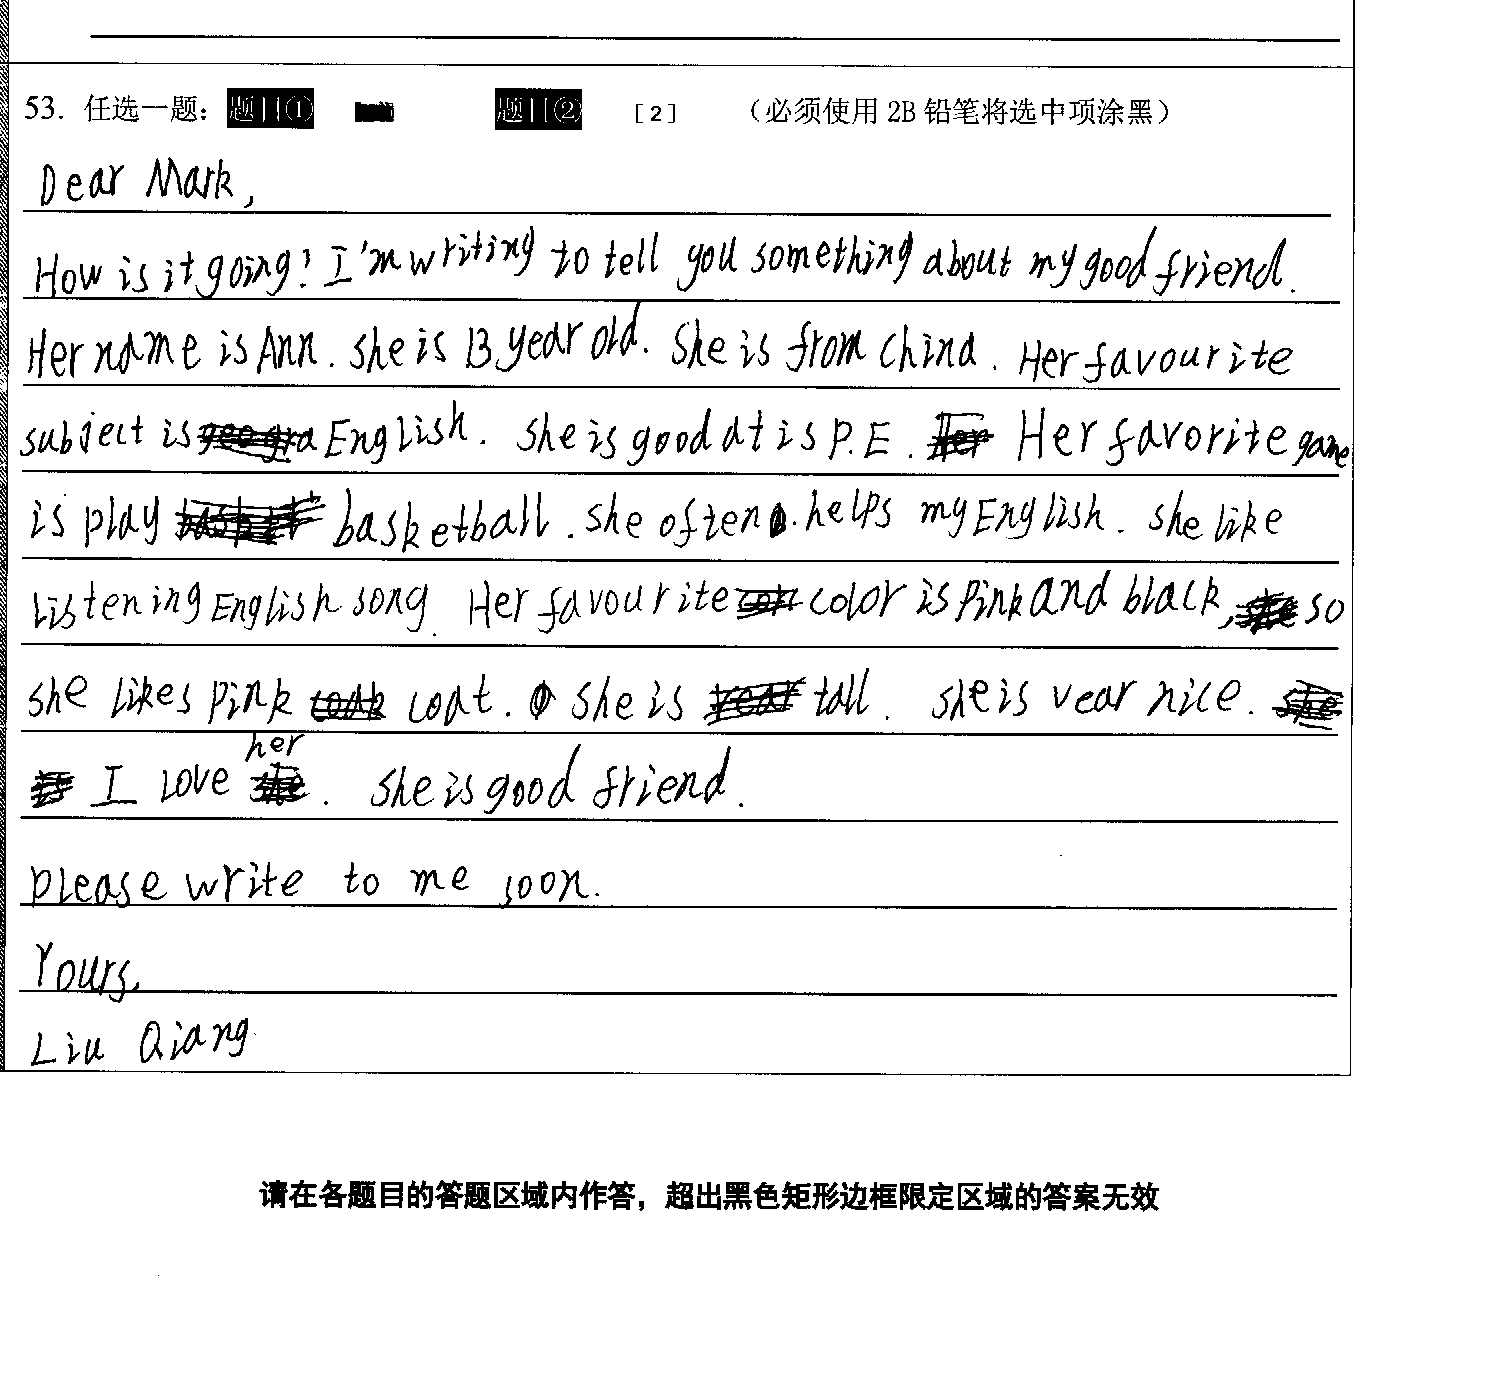 53. 任选一题： 题目① 题目② [2] （必须使用 2B 铅笔将选中项涂黑）
Dear Mark,
How is it going? I'm writing to tell you something about my good friend.
Her name is Ann. she is 13 year old. She is from china. Her favourite
subject is English. she is good at is P.E. Her favorite game
is play basketball. she often helps my English. she like
listening English song. Her favourite color is Pink and black, so
she likes pink coat. she is tall. she is vear nice.
I love her. she is good friend.
please write to me soon.
Yours,
Liu Qiang
请在各题目的答题区域内作答，超出黑色矩形边框限定区域的答案无效